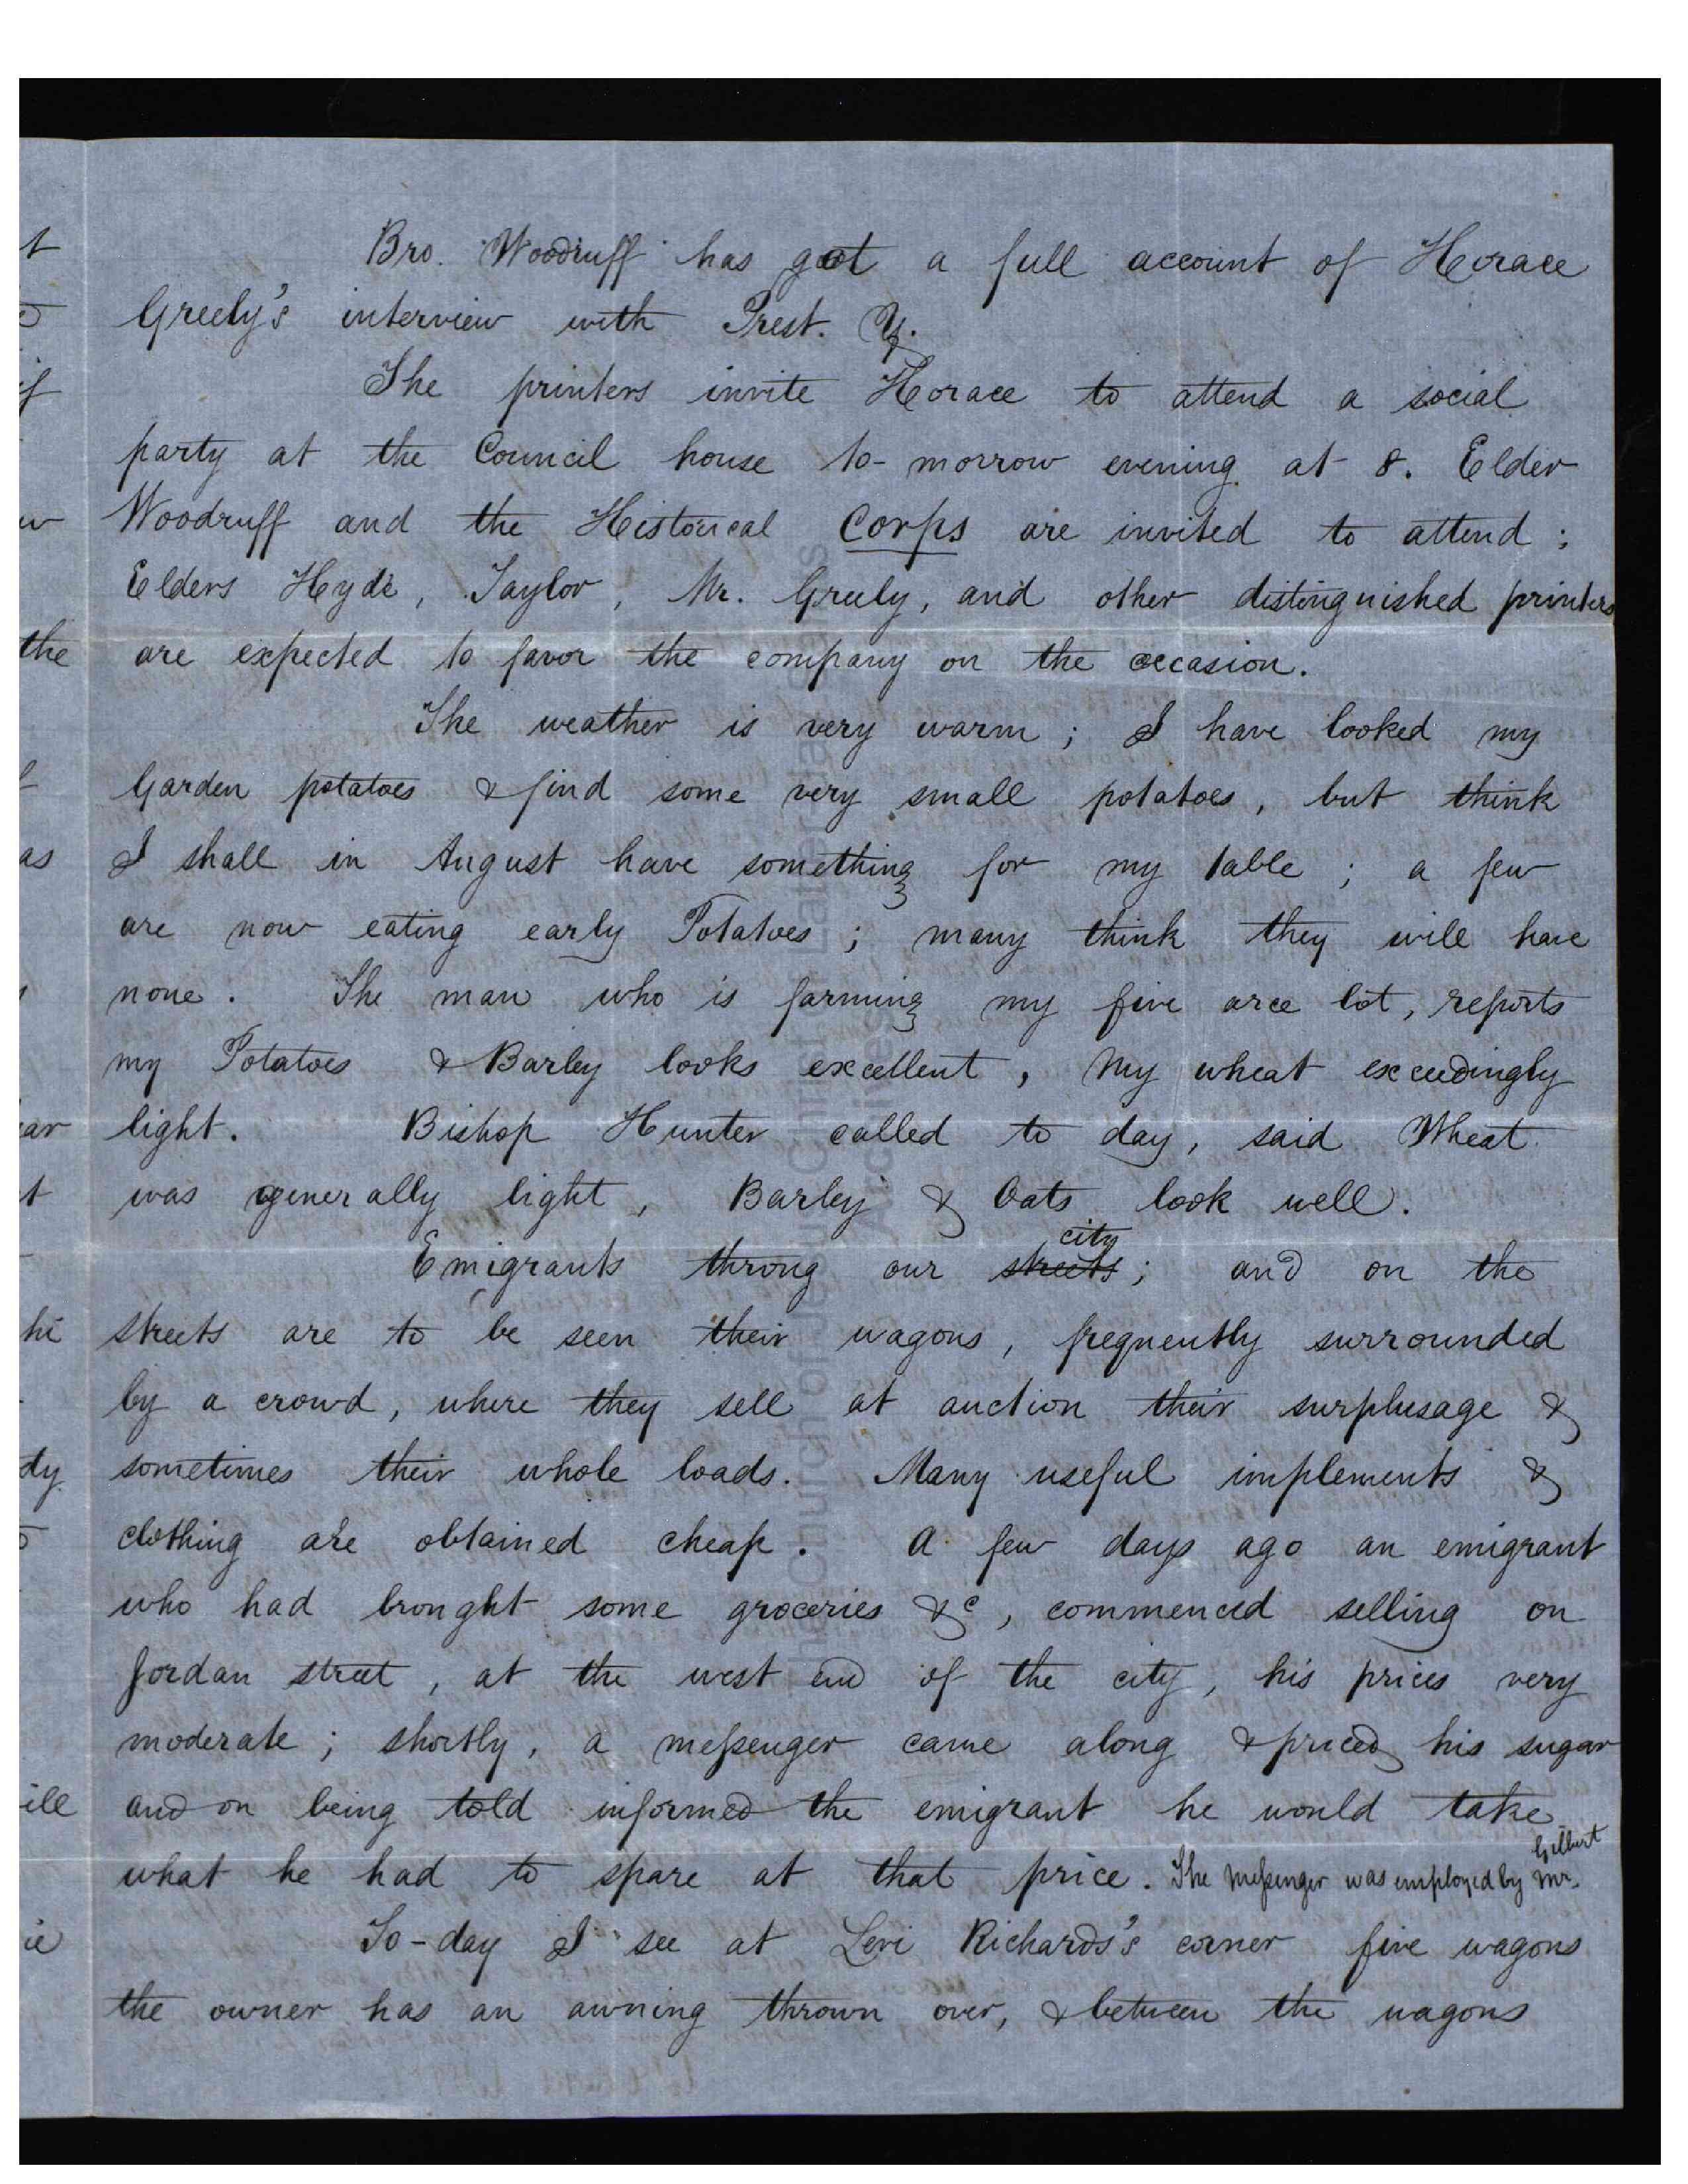 Bro. Woodruff has got a full account of Horace
Greely's interview with Prest. Y.
The printers invite Horace to attend a social
party at the Council house to-morrow evening at 8. Elder
Woodruff and the Historical Corps are invited to attend;
Elders Hyde, Taylor, Mr. Greely, and other distinguished printers
are expected to favor the company on the occasion.
The weather is very warm; I have looked my
Garden potatoes & find some very small potatoes, but think
I shall in August have something for my table; a few
are now eating early Potatoes; many think they will have
none. The man who is farming my five arce lot, reports
my Potatoes & Barley looks excellent, My wheat exceedingly
light. Bishop Hunter called to day, said Wheat
was generally light, Barley & Oats look well.
city
Emigrants throng our streets; and on the
streets are to be seen their wagons, frequently surrounded
by a crowd, where they sell at auction their surplusage &
sometimes their whole loads. Many useful implements &
clothing are obtained cheap. A few days ago an emigrant
who had brought some groceries &c, commenced selling on
Jordan street, at the west end of the city, his prices very
moderate; shortly, a messenger came along & priced his sugar
and on being told informed the emigrant he would take
Gilbert
what he had to spare at that price. The messenger was employed by Mr.
To-day I see at Levi Richards's corner five wagons
the owner has an awning thrown over, & between the wagons